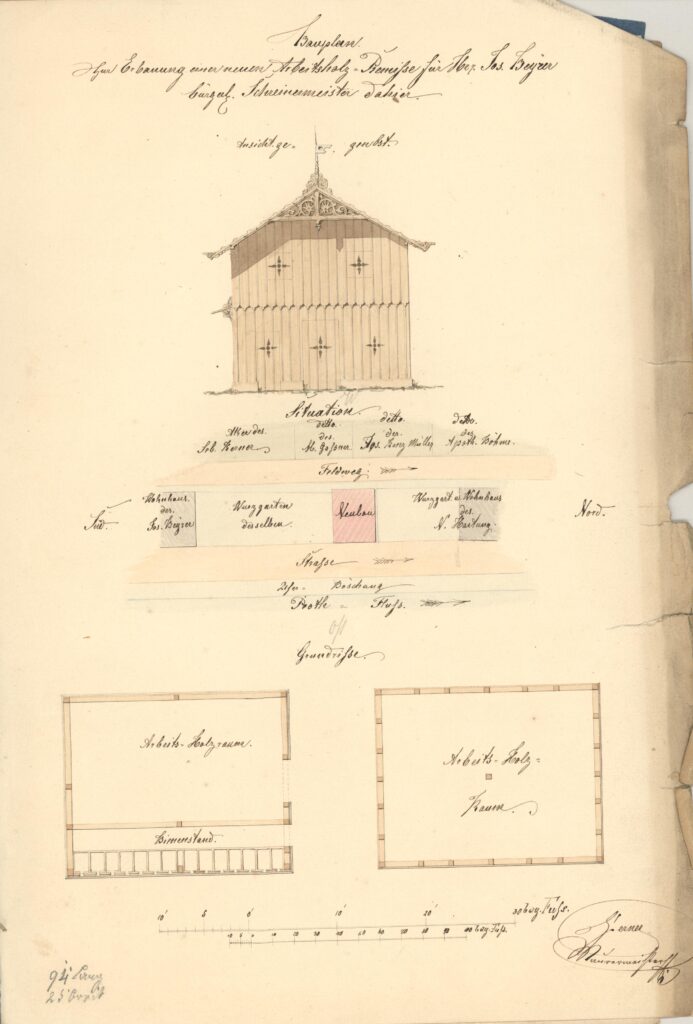 Bauplan.
Zur Erbauung einer neuen Arbeitsholz-Remisse für Hr. Jos. Beyrer
bürgerl. Schreinermeister dahier.
Ansicht ge- gen Ost.
Situation.
Aker des Seb. Kerner
detto. des M. Gaßner
detto. der Jos. Xaver Müller
detto. des Apoth. Böhme.
Feldweg.
Süd.
Wohnhaus. des. Jos. Beyrer
Wurzgarten desselben.
Neubau
Wurzgart u. Wohnhaus des N. Haitung.
Nord.
Strasse
Ufer- Böschung
Roth- Fluss.
Ost
Grundrisse.
Arbeits-Holzraum.
Bienenstand.
Arbeits-Holz-
Raum.
10' 5 0 10 20 30 bay. Fuss.
10 5 0 10 20 30 40 50 60 70 80 90 100 bay. Fuss.
Kerner
Maurermeister